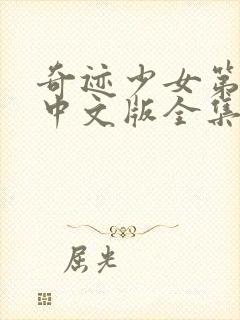 奇迹少女第
中文版全集
屈光